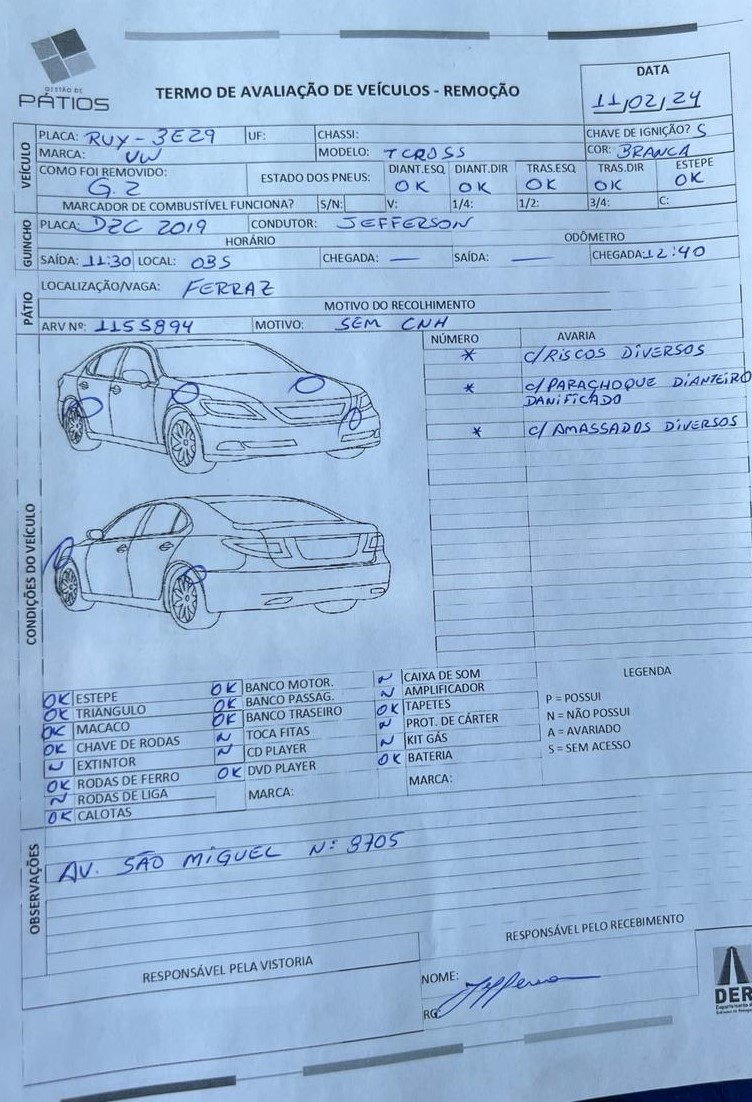 GESTÃO DE
PÁTIOS
TERMO DE AVALIAÇÃO DE VEÍCULOS - REMOÇÃO
DATA
11/02/24
VEÍCULO
PLACA: RUY - 3E29 UF: CHASSI: CHAVE DE IGNIÇÃO? S
MARCA: VW MODELO: TCROSS COR: BRANCA
COMO FOI REMOVIDO: G.2 ESTADO DOS PNEUS: DIANT.ESQ OK DIANT.DIR OK TRAS.ESQ OK TRAS.DIR OK ESTEPE OK
MARCADOR DE COMBUSTÍVEL FUNCIONA? S/N: V: 1/4: 1/2: 3/4: C:
GUINCHO
PLACA: DZC 2019 CONDUTOR: JEFFERSON
HORÁRIO ODÔMETRO
SAÍDA: 11:30 LOCAL: OBS CHEGADA: — SAÍDA: — CHEGADA: 12:40
PÁTIO
LOCALIZAÇÃO/VAGA: FERRAZ
MOTIVO DO RECOLHIMENTO
ARV Nº: 1155894 MOTIVO: SEM CNH
CONDIÇÕES DO VEÍCULO
NÚMERO AVARIA
* C/RISCOS DIVERSOS
* C/PARACHOQUE DIANTEIRO
DANIFICADO
* C/ AMASSADOS DIVERSOS
OK ESTEPE
OK TRIÂNGULO
OK MACACO
OK CHAVE DE RODAS
N EXTINTOR
OK RODAS DE FERRO
N RODAS DE LIGA
OK CALOTAS
OK BANCO MOTOR.
OK BANCO PASSAG.
OK BANCO TRASEIRO
N TOCA FITAS
N CD PLAYER
OK DVD PLAYER
MARCA:
N CAIXA DE SOM
N AMPLIFICADOR
OK TAPETES
N PROT. DE CÁRTER
N KIT GÁS
OK BATERIA
MARCA:
LEGENDA
P = POSSUI
N = NÃO POSSUI
A = AVARIADO
S = SEM ACESSO
OBSERVAÇÕES
AV. SÃO MIGUEL Nº 8705
RESPONSÁVEL PELA VISTORIA
RESPONSÁVEL PELO RECEBIMENTO
NOME: Jefferson
RG:
DER